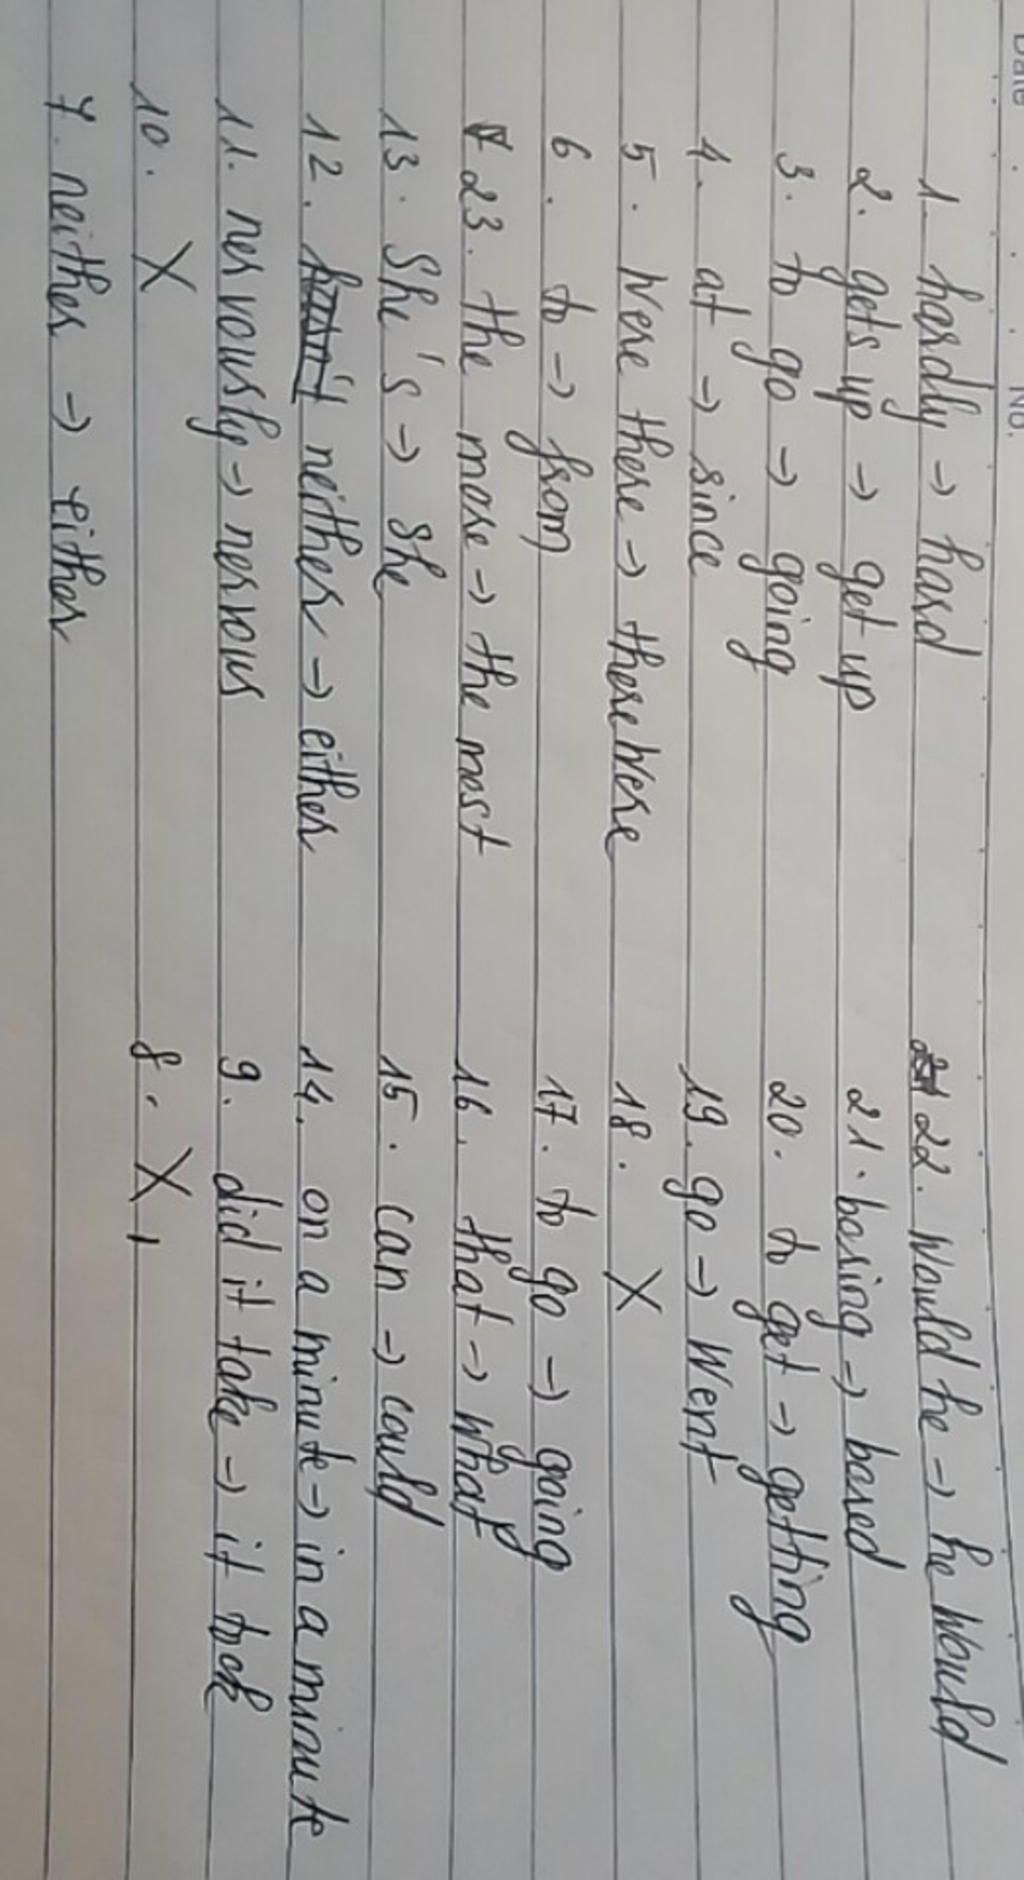 Date . No.
1. hardly → hard
22. Would he → he would
2. gets up → get up
21. boring → bored
3. to go → going
20. to get → getting
4. at → since
19. go → went
5. Were there → there were
18. X
6. to → from
17. to go → going
23. the more → the most
16. that → what
13. She's → She
15. can → could
12. neither → either
14. on a minute → in a minute
11. nervously → nervous
9. did it take → it took
10. X
8. X
7. neither → either